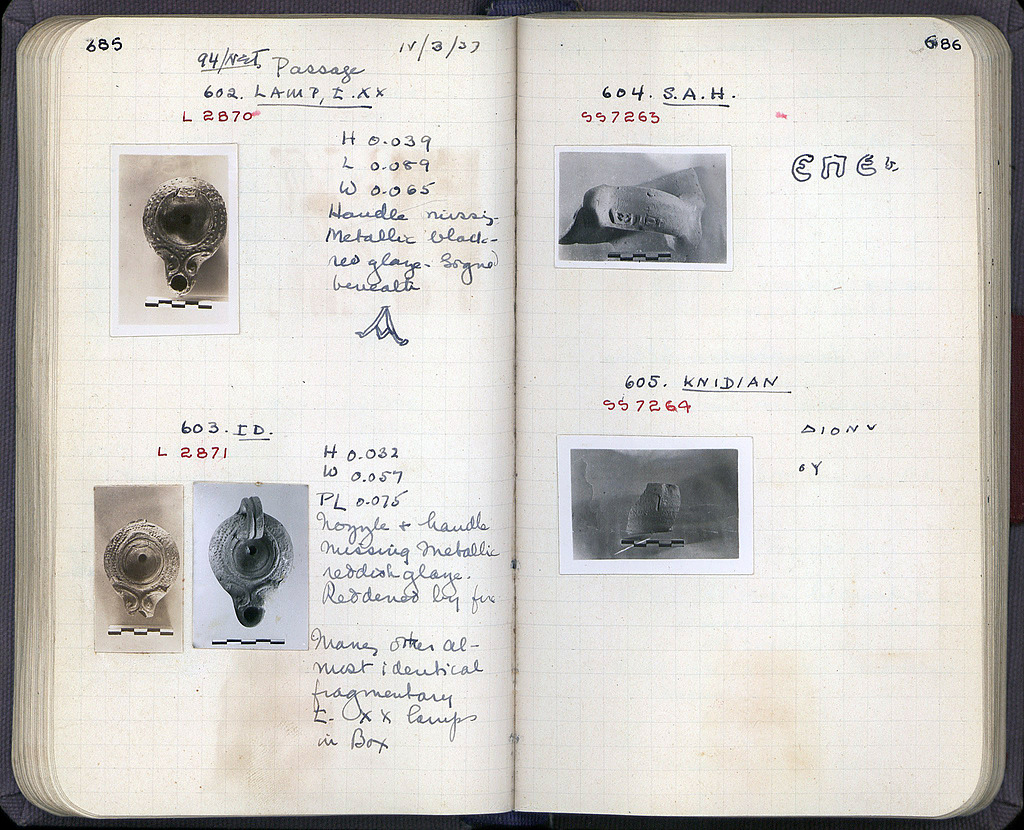 685
IV/3/37
94/ Passage
602. LAMP, T. XX
L 2870
H 0.039
L 0.089
W 0.065
Handle missig.
Metallic black-
red glaze. Signed
beneath
A
603. ID.
L 2871
H 0.032
W 0.057
PL 0.075
Nozzle + handle
missing Metallic
reddish glaze.
Reddened by fire
Many other al-
most identical
fragmentary
T. XX lamps
in Box
686
604. S.A.H.
SS7263
ΕΠΕ
605. KNIDIAN
SS7264
ΔΙΟΝΥ
ΟΥ